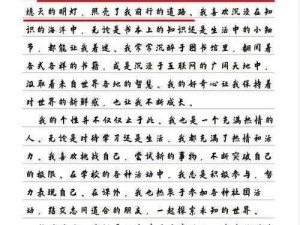 烧天的明灯,照亮了我前行的道路。我喜欢沉浸在知
识的海洋中,无论是书本上的知识还是生活中的小细
节,都能让我着迷。我常常沉醉于图书馆里,翻阅着
各式各样的书籍,或是沉浸于互联网的广阔天地中,
汲取着来自世界各地的智慧。我的好奇心让我保持着
对世界的新鲜感,也让我不断成长。
我的个性并不仅仅止于此。我也是一个充满热情的
人。无论是对待学习还是生活,我都充满了热情和活
力。我喜欢挑战自己,尝试新的事物,不断突破自己
的极限。在学校的各种活动中,我总是积极参与,努
力表现自己。在课外,我也热衷于参加各种社团活
动,结交志同道合的朋友,一起探索未知的世界。